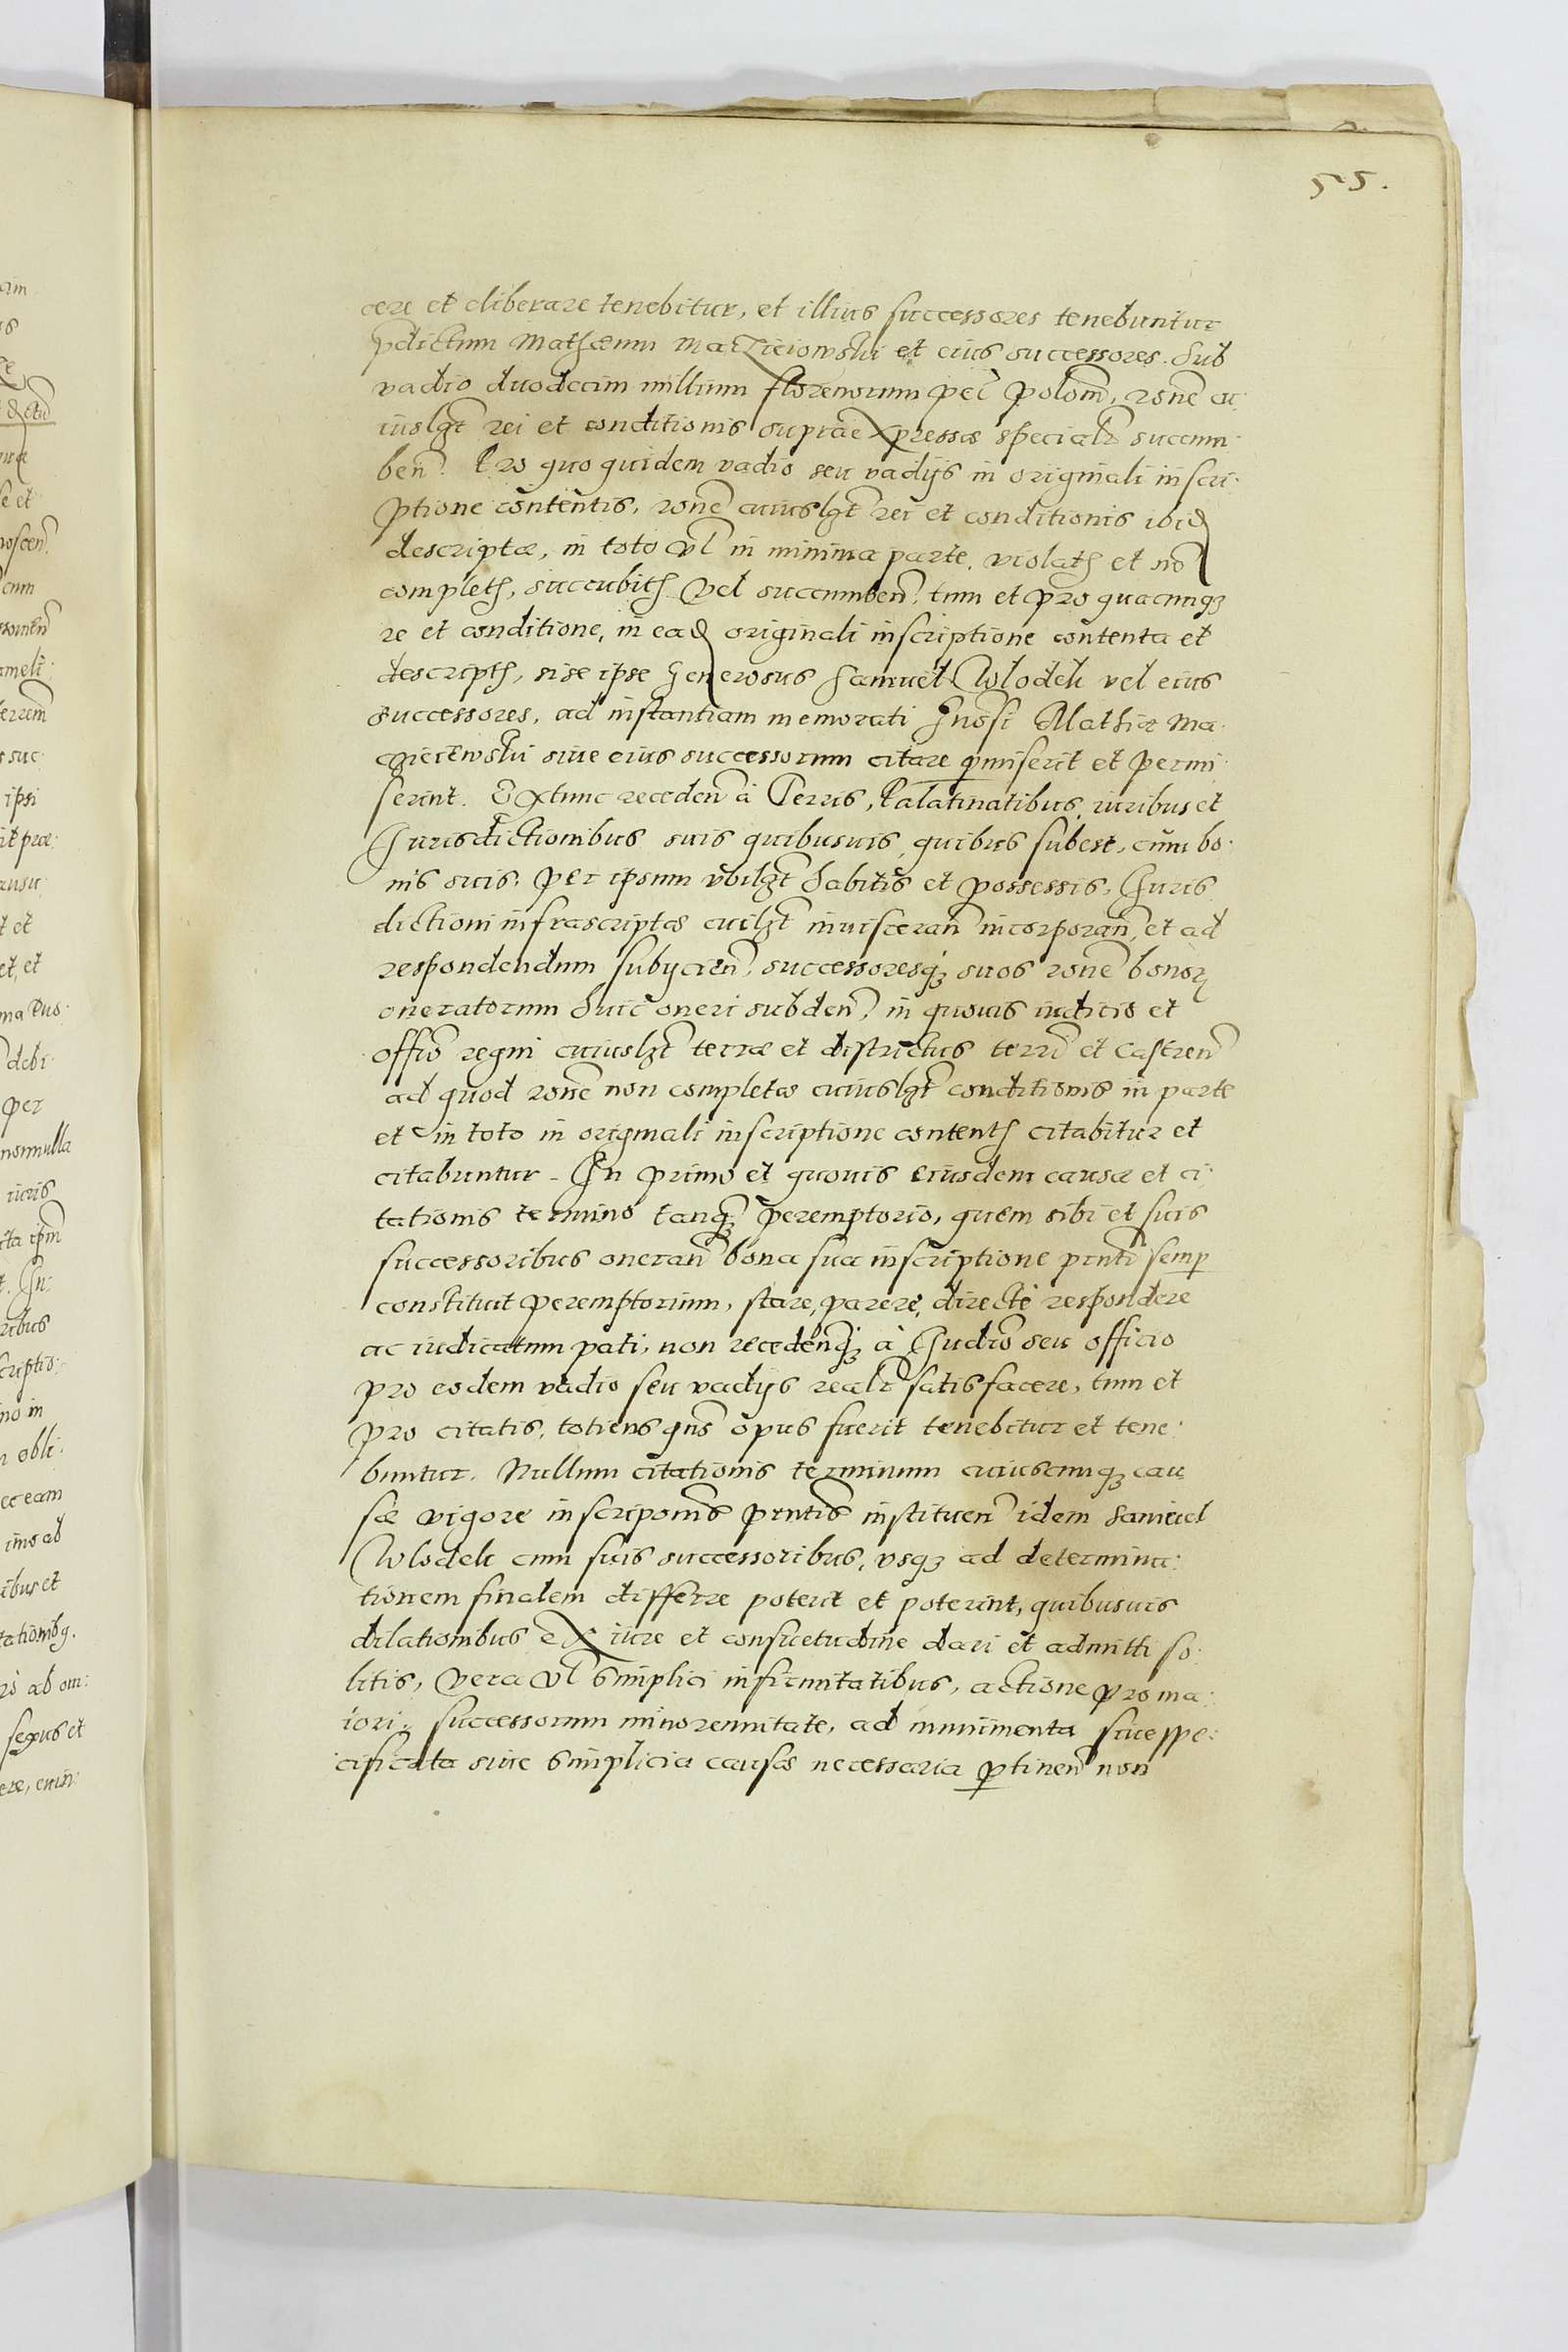 55.
cere et eliberare tenebitur, et illius successores tenebuntur
p̄dictum Mathæum Maczieiowski et eius successores. Sub
vadio duodecim millium florenorum pec̃ polom̃, rone cu
iuslg̃t rei et conditionis supraexpressæ specialr̃ succum
beñ. Pro quo quidem vadio seu vadijs in originali inscri
ptione contentis, rone cuiuslg̃t rei et conditionis ibid
descriptæ, in toto vl in minima parte violatæ et nõ
completæ, succubitæ vel succumbeñ, tum et pro quacunqꝫ
re et conditione, in ead originali inscriptione contenta et
descripta, si se ipse Generosus Samuel Wlodek vel eius
successores, ad instantiam memorati Gnosi Mathiæ Ma
cieiewski siue eius successorum citare p̱miserit et permi
serint. Extunc recedeñ à Terris, Palatinatibus, iuribus et
Jurisdictionibus suis quibusuis, quibus subest, cum bo
nis suis, per ipsum vbilg̃t habitis et possessis, Juris
dictioni infrascriptæ cuilg̃t inuisceran̄ incorporan̄, et ad
respondendum subijcieñ, successoresqꝫ suos rone bonoꝝ
oneratorum huic oneri subdeñ, in quouis iudicio et
offῖo regni cuiuslg̃t terræ et districtus terrῖ et castreñ
ad quod rone non completæ cuiuslg̃t conditionis in parte
et in toto in originali inscriptione contentæ citabitur et
citabuntur. In primo et quouis eiusdem causæ et ci
tationis termino tanqꝫ peremptorio, quem sibi et suis
successoribus oneran̄ bona sua inscriptione pn̄ti semp̱
constituit peremptorium, stare, parere, directè respondere
ac iudicatum pati, non recedenqꝫ à Judῖo seu officio
pro eodem vadio seu vadijs realr̃ satisfacere, tum et
pro citatis, totiens qñs opus fuerit tenebitur et tene
buntur. Nullum citationis terminum cuiuscunqꝫ cau
sæ vigore inscripõnis pn̄tis instituen̄ idem Samuel
Wlodek cum suis successoribus, vsqꝫ ad determina
tionem finalem differre poterit et poterint, quibusuis
dilationibus ex iure et consuetudine dari et admitti so
litis, vera vl simplici infirmitatibus, actione pro ma
iori, successorum minorennitate, ad munimenta siue spe
cificata siue simplicia causæ necessaria p̱tinen̄ non